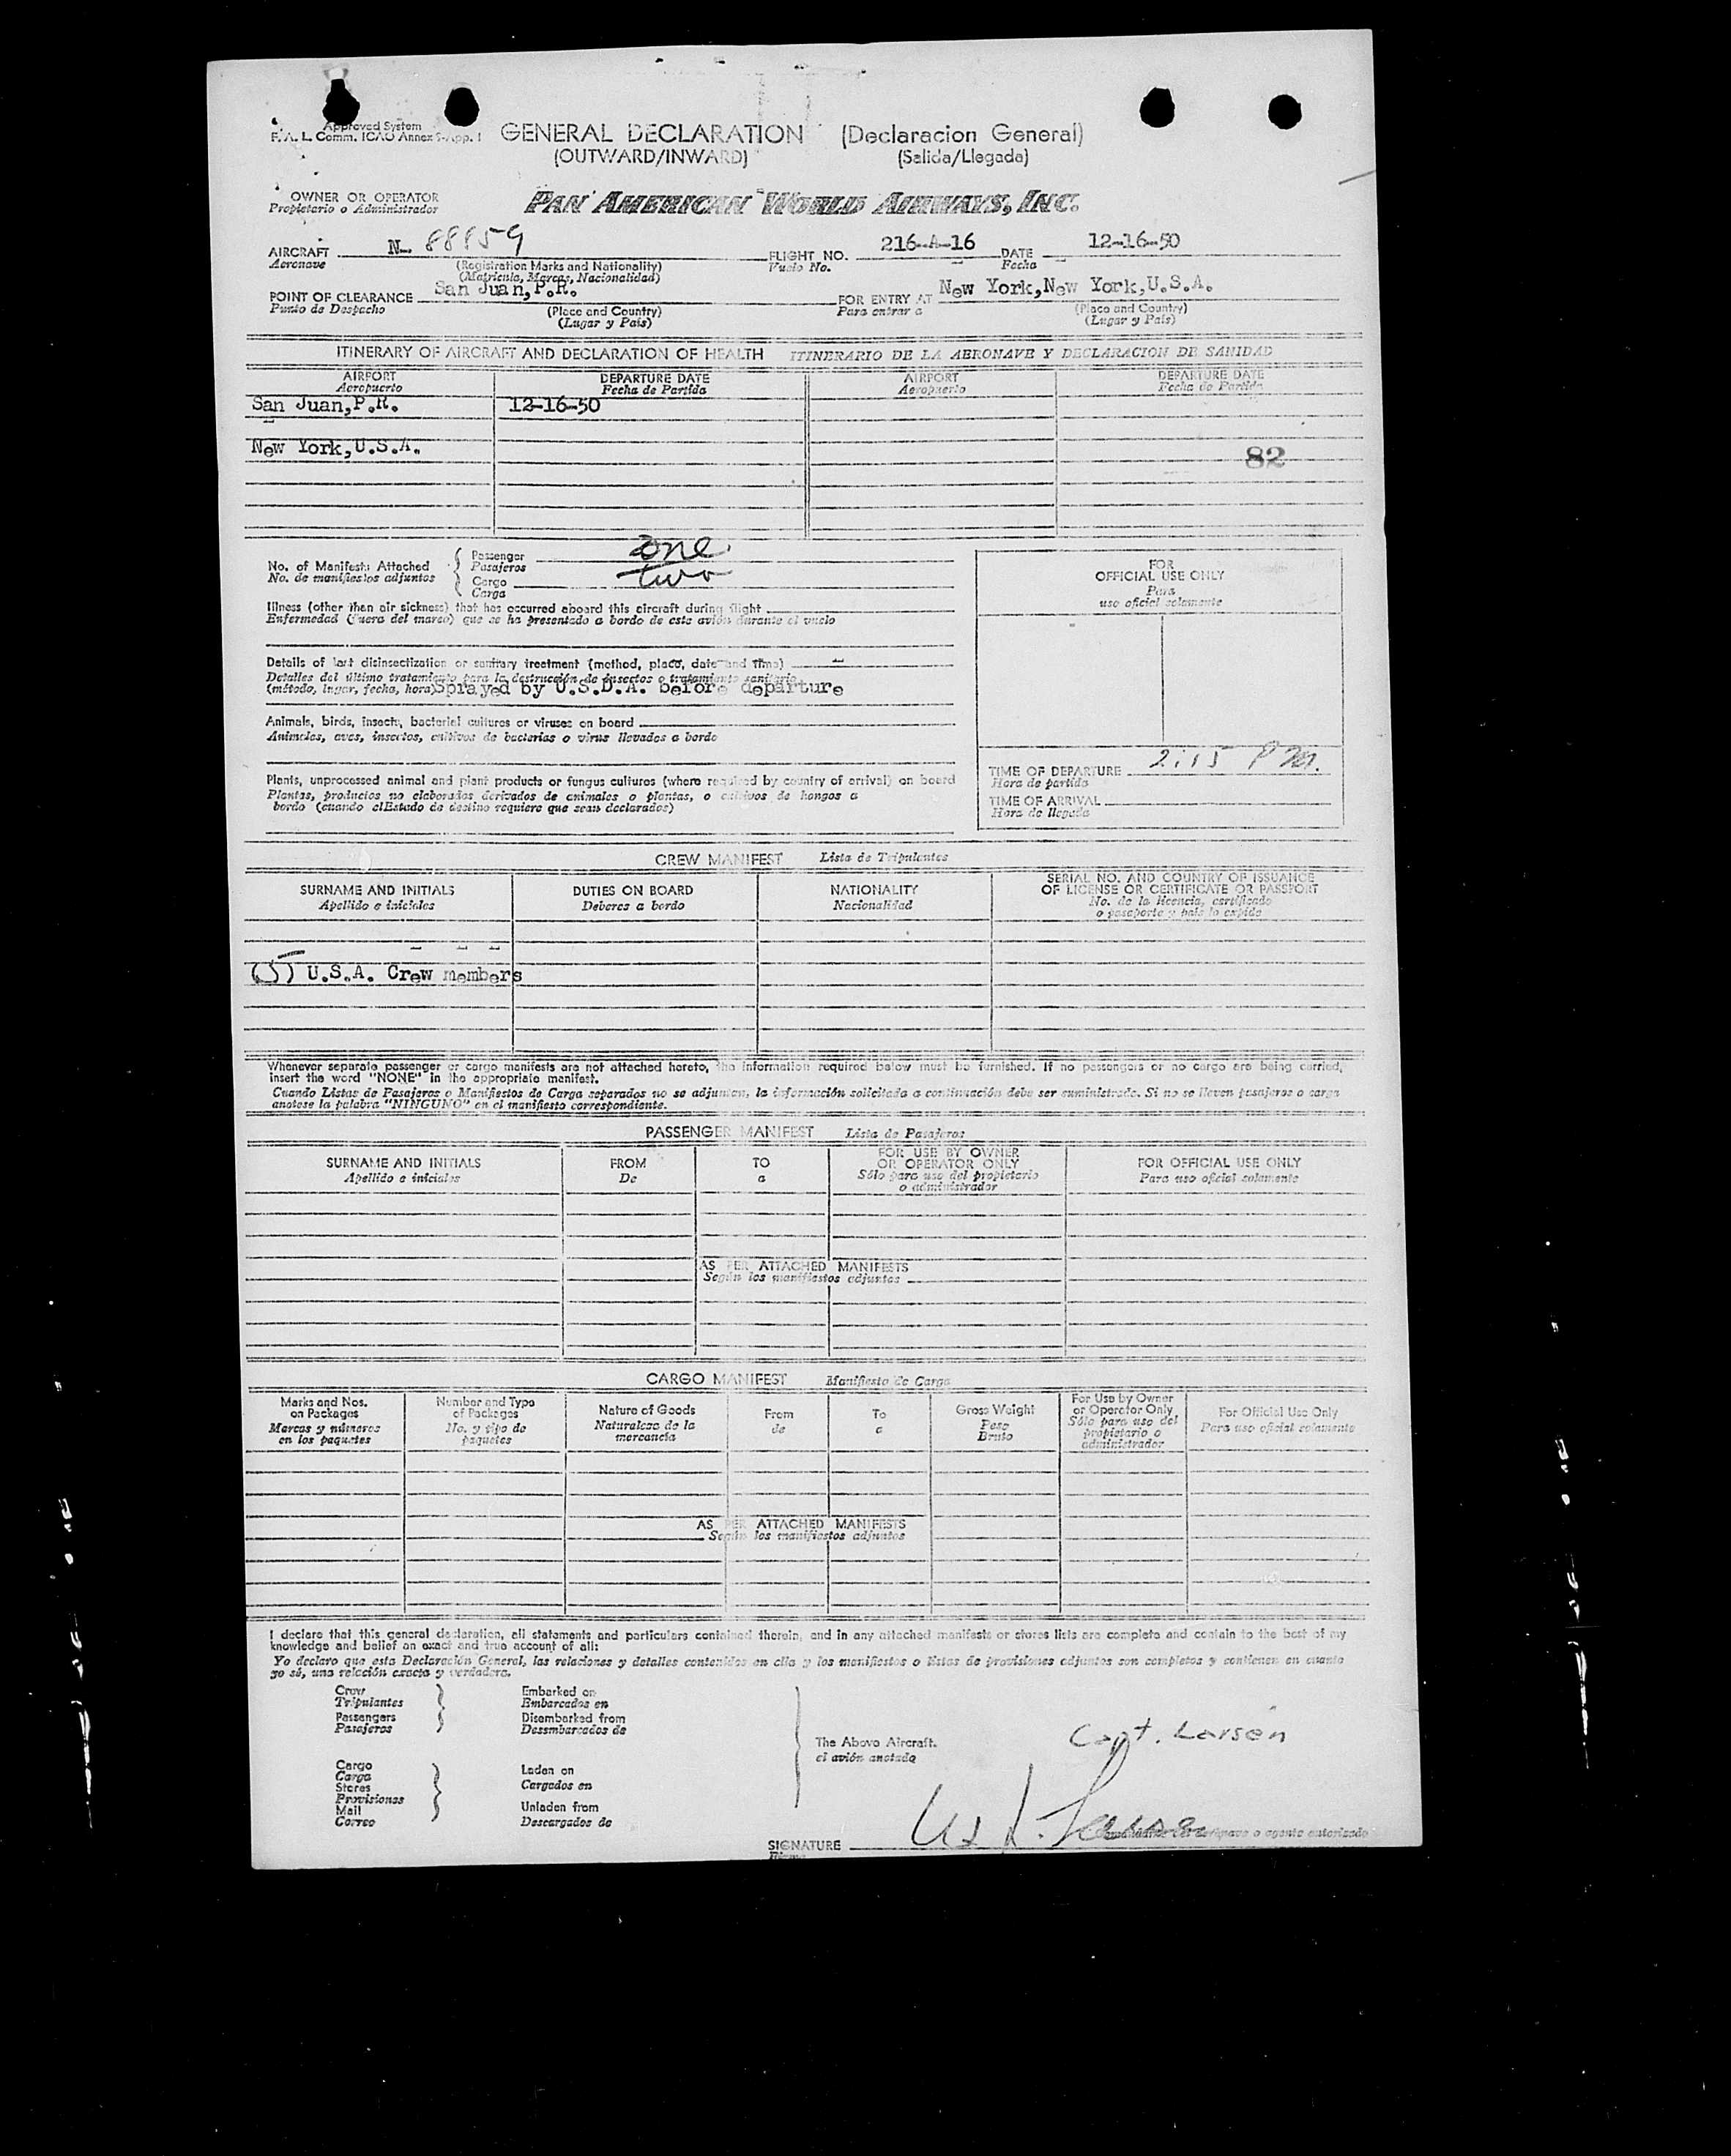 Approved System
F. A. L. Comm. ICAO Annex 9-App. 1
GENERAL DECLARATION (Declaracion General)
(OUTWARD/INWARD) (Salida/Llegada)
OWNER OR OPERATOR
Propietario o Administrador
PAN AMERICAN WORLD AIRWAYS, INC.
AIRCRAFT N- 88859 FLIGHT NO. 216-A-16 DATE 12-16-50
Aeronave (Registration Marks and Nationality) Vuelo No. Fecha
(Matricula, Marcas, Nacionalidad)
POINT OF CLEARANCE San Juan,P.R. FOR ENTRY AT New York,New York,U.S.A.
Punto de Despacho (Place and Country) Para entrar a (Place and Country)
(Lugar y País) (Lugar y País)
ITINERARY OF AIRCRAFT AND DECLARATION OF HEALTH ITINERARIO DE LA AERONAVE Y DECLARACION DE SANIDAD
AIRPORT DEPARTURE DATE AIRPORT DEPARTURE DATE
Aeropuerto Fecha de Partida Aeropuerto Fecha de Partida
San Juan,P.R. 12-16-50
New York,U.S.A.
82
No. of Manifests Attached
No. de manifiestos adjuntos
Passenger one
Pasajeros
Cargo two
Carga
FOR
OFFICIAL USE ONLY
Para
uso oficial solamente
Illness (other than air sickness) that has occurred aboard this aircraft during flight
Enfermedad (fuera del mareo) que se ha presentado a bordo de este avión durante el vuelo
Details of last disinsectization or sanitary treatment (method, place, date and time)
Detalles del último tratamiento para la destrucción de insectos o tratamiento sanitario
(método, lugar, fecha, hora) Sprayed by U.S.D.A. before departure
Animals, birds, insects, bacterial cultures or viruses on board
Animales, aves, insectos, cultivos de bacterias o virus llevados a bordo
Plants, unprocessed animal and plant products or fungus cultures (where required by country of arrival) on board
Plantas, productos no elaborados derivados de animales o plantas, o cultivos de hongos a
bordo (cuando elEstado de destino requiere que sean declarados)
TIME OF DEPARTURE 2:15 P M.
Hora de partida
TIME OF ARRIVAL
Hora de llegada
CREW MANIFEST Lista de Tripulantes
SURNAME AND INITIALS DUTIES ON BOARD NATIONALITY SERIAL NO. AND COUNTRY OF ISSUANCE
OF LICENSE OR CERTIFICATE OR PASSPORT
Apellido e iniciales Deberes a bordo Nacionalidad No. de la licencia, certificado
o pasaporte y país lo expide
(5) U.S.A. Crew members
Whenever separate passenger or cargo manifests are not attached hereto, the information required below must be furnished. If no passengers or no cargo are being carried,
insert the word "NONE" in the appropriate manifest.
Cuando Listas de Pasajeros o Manifiestos de Carga separados no se adjuntan, la información solicitada a continuación debe ser suministrada. Si no se lleven pasajeros o carga
anotese la palabra "NINGUNO" en el manifiesto correspondiente.
PASSENGER MANIFEST Lista de Pasajeros
SURNAME AND INITIALS FROM TO FOR USE BY OWNER
OR OPERATOR ONLY FOR OFFICIAL USE ONLY
Apellido e iniciales De a Sólo para uso del propietario
o administrador Para uso oficial solamente
AS PER ATTACHED MANIFESTS
Según los manifiestos adjuntos
CARGO MANIFEST Manifiesto de Carga
Marks and Nos.
on Packages
Marcas y números
en los paquetes
Number and Type
of Packages
No. y tipo de
paquetes
Nature of Goods
Naturaleza de la
mercancía
From
de
To
a
Gross Weight
Peso
Bruto
For Use by Owner
or Operator Only
Sólo para uso del
propietario o
administrador
For Official Use Only
Para uso oficial solamente
AS PER ATTACHED MANIFESTS
Según los manifiestos adjuntos
I declare that this general declaration, all statements and particulars contained therein, and in any attached manifests or stores lists are complete and contain to the best of my
knowledge and belief an exact and true account of all:
Yo declaro que esta Declaración General, las relaciones y detalles contenidos en ella y los manifiestos o listas de provisiones adjuntos son completos y contienen en cuanto
yo sé, una relación exacta y verdadera.
Crew
Tripulantes
Passengers
Pasajeros
Embarked on
Embarcados en
Disembarked from
Desembarcados de
Cargo
Carga
Stores
Provisiones
Mail
Correo
Laden on
Cargados en
Unladen from
Descargados de
The Above Aircraft.
el avión anotado
Capt. Larsen
SIGNATURE
Firma
o agente autorizado